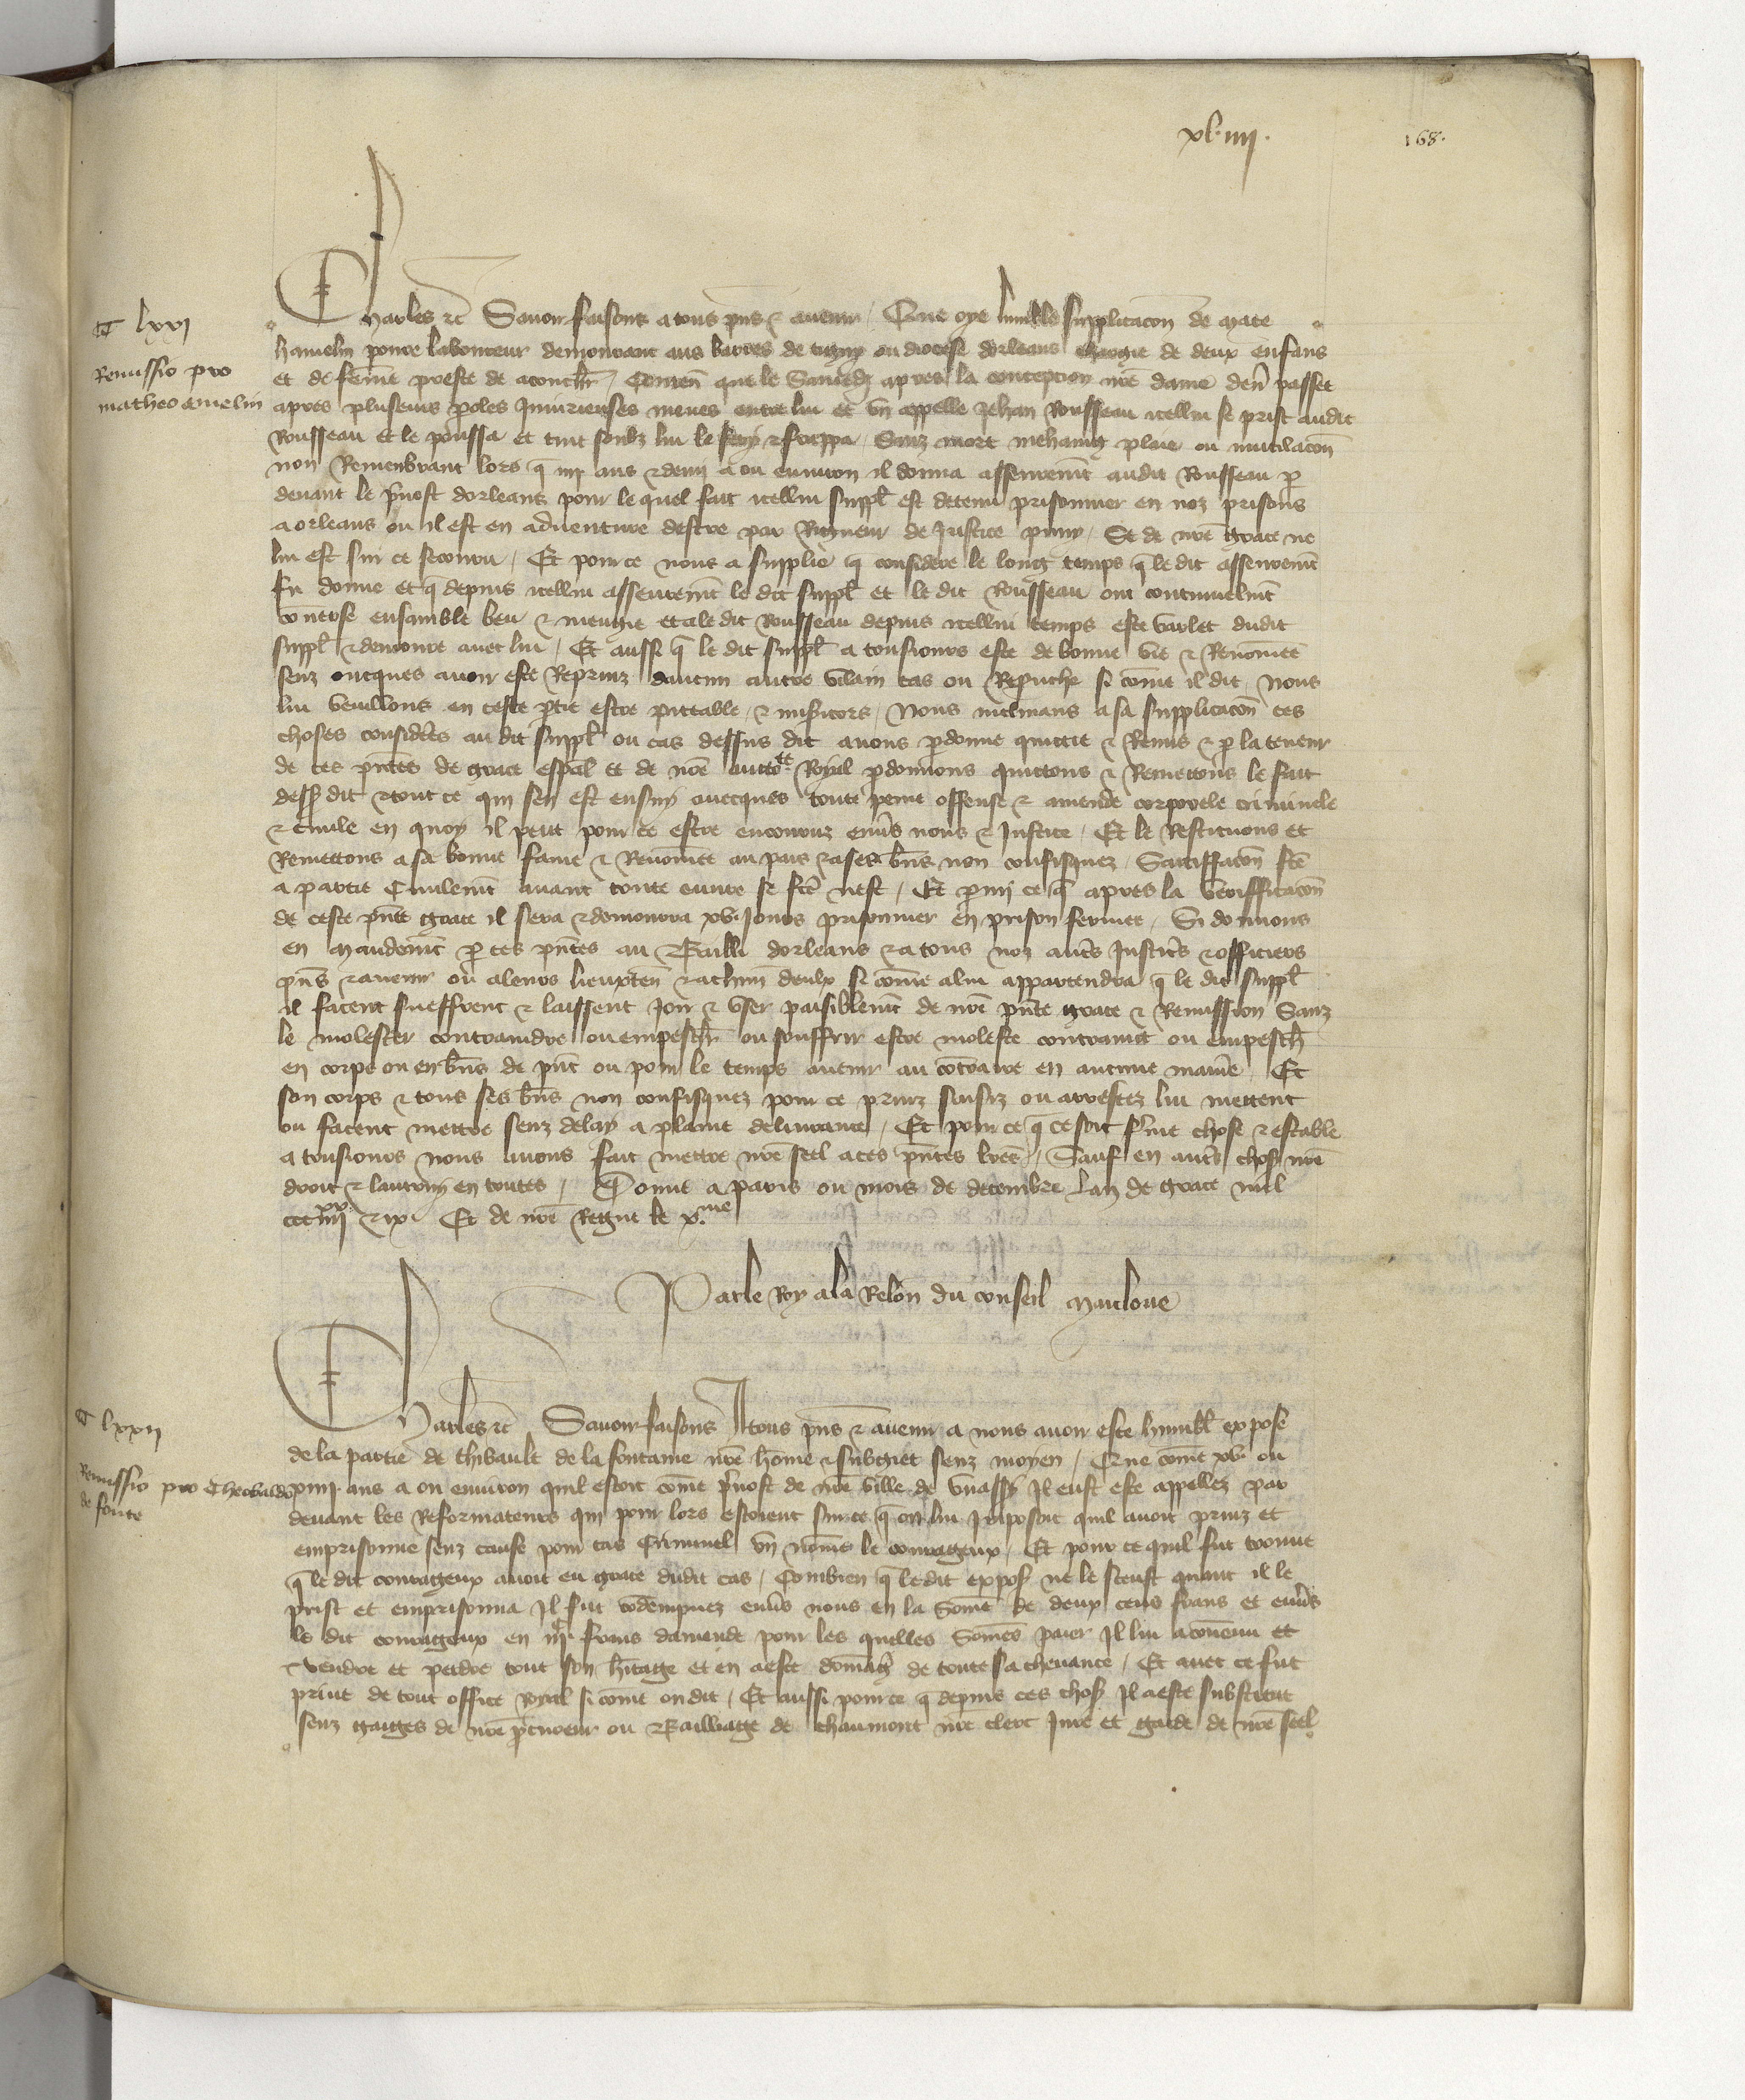 xliiii.
168.
lxxi
Remissio pro
matheo amelin
Charles etc Savoir faisons a tous p̄ns et avenir / Que oye humble supplicacōn de Mate
hamelin povre laboureur demourant aus barres de tigny ou diocese dorleans chargie de deux enfans
et de fem̄e preste de acouchr̄ / Conten̄ que le Samedi apres la concepcion nr̄e dame den̄ passee
apres pluseurs p̄oles Injurieuses meues entre lui et un appelle Jehan Rousseau icellui se prist audit
Rousseau et le poussa et tint soubz lui le fery et frappa Sanz mort mehaing plaie ou mutilacōn
non Remenbrant lors q̄ iiij ans et demi a ou environ il donna asseurem̄t audit Rousseau p̄
devant le p̄vost dorleans pour le quel fait icellui suppl̄ est detenu prisonnier en noz prisons
a orleans ou il est en adventure destre par Rigueur de Justice puny / Se de nr̄e grace ne
lui est sur ce secouru / Et pour ce nous a supplie q̄ considere le long temps q̄ le dit asseurem̄t
fu donne et q̄ depuis icellui asseurem̄t le dit suppl̄ et le dit Rousseau ont continuelm̄t
converse ensamble beu et mengie et a le dit Rousseau depuis icellui temps este varlet dudit
suppl̄ et demoure avec lui / Et aussi q̄ le dit suppl̄ a tousiours este de bonne vie et Renom̄ee
senz oncques avoir este Reprinz daucun autre vilain cas ou Reprouche si com̄e il dit Nous
lui veuillons en ceste p̄tie estre piteable et mis̄icors / Nous inclinans a sa supplicacōn ces
choses consider̄es au dit suppl̄ ou cas dessus dit avons p̄donne quictie et Remis et p̄ la teneur
de ces p̄ntes de grace esp̄al et de nr̄e auctote Royal p̄donnons quictons et Remettons le fait
dess̄ dit et tout ce qui sen est ensuy avecques toute peine offense et amende corporele criminele
et civile en quoy il peut pour ce estre encouruz env̄s nous et Justice / Et le Restituons et
Remettons a sa bonne fame et Renom̄ee au pais et a ses b̄ns non confisquez / Satiffacōn fc̄e
a partie Civilem̄t avant toute euvre se fc̄e nest / Et p̄mi ce q̄ apres la verifficacōn
de ceste p̄nte grace il sera et demourra xv. Jours prisonnier en prison fermee / Si donnons
en Mandem̄t p̄ ces p̄ntes au Bailli dorleans et a tous noz autr̄s Justic̄rs et officiers
p̄ns et avenir ou a leurs lieuxten̄ et a chūn deulx si com̄e a lui appartendra q̄ le dit suppl̄
il facent sueffrent et laissent Joir et user paisiblem̄t de nr̄e p̄nte grace et Remission Sanz
le molester contraindre ou empeschr̄ ou souffrir estre moleste contraint ou empesch̄
en corps ou en b̄ns de p̄nt ou pour le temps avenir au cōtraire en aucune manie͛ Et
son corps et tous ses b̄ns non confisquez pour ce prinz saisiz ou arrestez lui mettent
ou facent mettre senz delay a plaine delivrance / Et pour ce q̄ ce soit f̄me chose et estable
a tousiours nous avons fait mettre nr̄e seel a ces p̄ntes lr̄es / Sauf en autr̄s chos̄ nr̄e
droit et lautruy en toutes / Donne a paris ou mois de decembre Lan de grace mil
ccc iiijxx et ix. Et de nr̄e Regne le x.me
Par le Roy a la Relōn du conseil Mauloue
lxxii
Remissio pro Theobaldo
de fonte
Charles etc Savoir faisons A tous p̄ns et avenir a nous avoir este humbl̄ expose
de la partie de thibault de la fontaine nr̄e hōme et subgiet senz moyen / Que com̄e xv. ou
xviij. ans a ou environ quil estoit com̄e p̄vost de nr̄e ville de vuassy Il eust este appellez par
devant les Reformateurs qui pour lors estoient sur ce q̄ on lui Imposoit quil avoit prinz et
emprisonne senz cause pour cas Criminel un nom̄e le courageux / Et pour ce quil fut trouve
q̄ le dit courageux avoit eu grace dudit cas / Combien q̄ le dit expos̄ ne le sceust quant il le
prist et emprisonna Il fut cōdempnez env̄s nous en la Som̄e de deux cens frans et env̄s
le dit courageux en frans damende pour les quelles Som̄es paier Il lui a convenu et
vendre et perdre tout son h̄itage et en a este dōmaḡ de toute sa chevance / Et avec ce fut
prive de tout office Royal si com̄e on dit / Et aussi pour ce q̄ depuis ces chos̄ Il a este substitut
senz gaiges de nr̄e p̄cureur ou Bailliage de chaumont nr̄e clerc Jure et garde de nr̄e seel